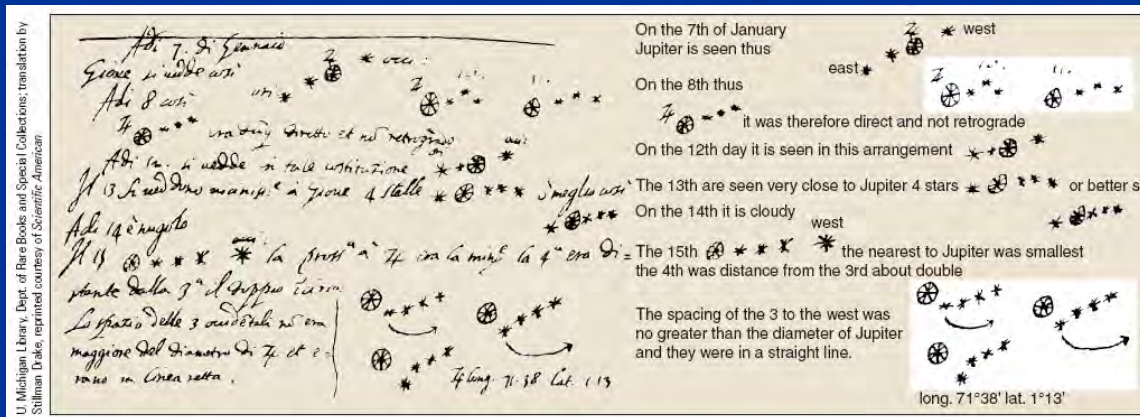 U. Michigan Library, Dept. of Rare Books and Special Collections; translation by
Stillman Drake, reprinted courtesy of Scientific American
Adi 7. di Gennaio
Gione si vedde così
occ:
Adi 8 così
ori
era dūq diretto et nō retrogrado
Adi 12. si vedde in tale costituzione
Il 13 si veddono à Gione 4 stelle
ò meglio così
Adi 14 è nugolo
Il 15
la pross.ᵃ à ♃ era la min.ᵉ la 4.ᵃ era di=
stante dalla 3.ᵃ il doppio
Lo spazio delle 3 occidētali nō era
maggiore del diametro di ♃ et e=
rano in linea retta.
♃ long. 71.38 Lat. 1.13
On the 7th of January
Jupiter is seen thus
west
east
On the 8th thus
it was therefore direct and not retrograde
On the 12th day it is seen in this arrangement
The 13th are seen very close to Jupiter 4 stars
or better s
On the 14th it is cloudy
west
The 15th
the nearest to Jupiter was smallest
the 4th was distance from the 3rd about double
The spacing of the 3 to the west was
no greater than the diameter of Jupiter
and they were in a straight line.
long. 71°38' lat. 1°13'